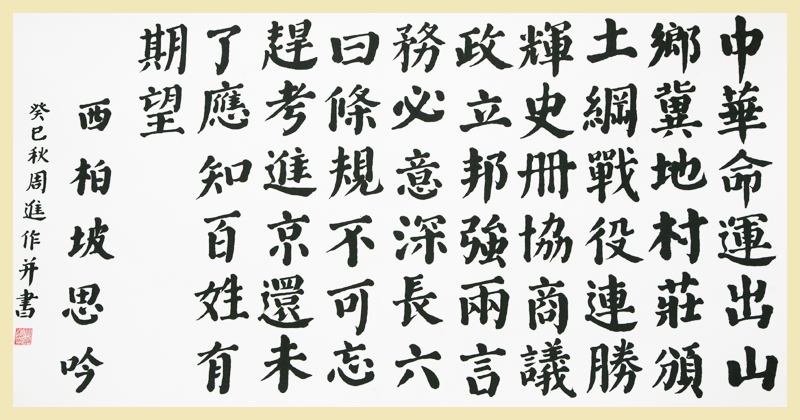 中華命運出山
鄉冀地村莊頒
土綱戰役連勝
輝史冊協商議
政立邦強兩言
務必意深長六
曰條規不可忘
趕考進京還未
了應知百姓有
期望
西柏坡思吟
癸巳秋周進作并書